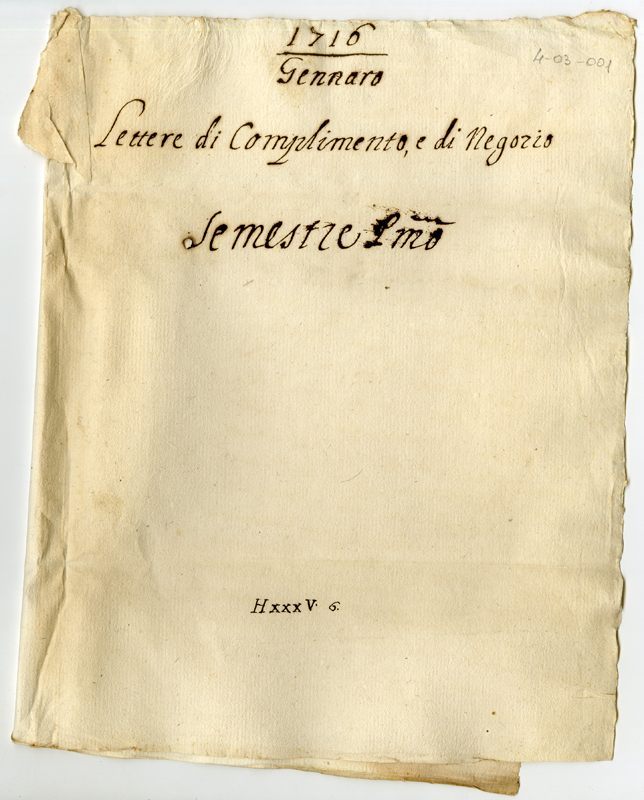 1716
4-03-001
Gennaro
Lettere di Complimento, e di Negozio
Semestre Pmõ
HxxxV. 6.